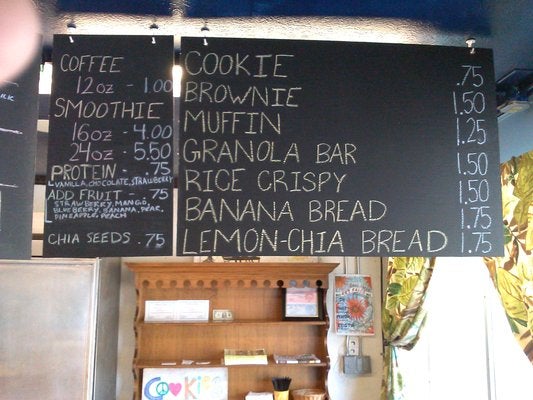 COFFEE
12oz - 1.00
SMOOTHIE
16oz - 4.00
24oz - 5.50
PROTEIN - .75
VANILLA, CHOCOLATE, STRAWBERRY
ADD FRUIT - .75
STRAWBERRY, MANGO,
BLUEBERRY, BANANA, PEAR,
PINEAPPLE, PEACH
CHIA SEEDS .75
COOKIE .75
BROWNIE 1.50
MUFFIN 1.25
GRANOLA BAR 1.50
RICE CRISPY 1.50
BANANA BREAD 1.75
LEMON-CHIA BREAD 1.75
COOKIES